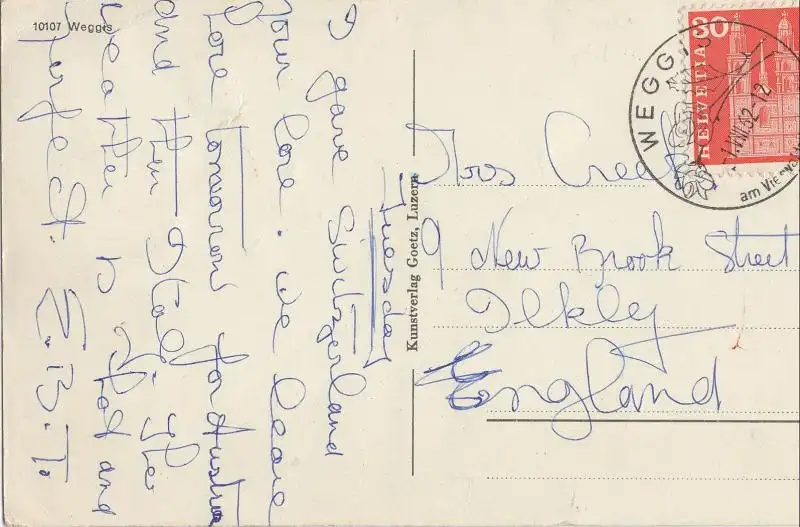 10107 Weggis
Tuesday
I gave Switzerland
your love. We leave
here tomorrow for Austria
and then Italy. The
weather is hot and
perfect. E.B.T.
Kunstverlag Goetz, Luzern
Creek
9 New Brook Street
Ilkley
England
30
HELVETIA
WEGG
VII.62-12
am Vie